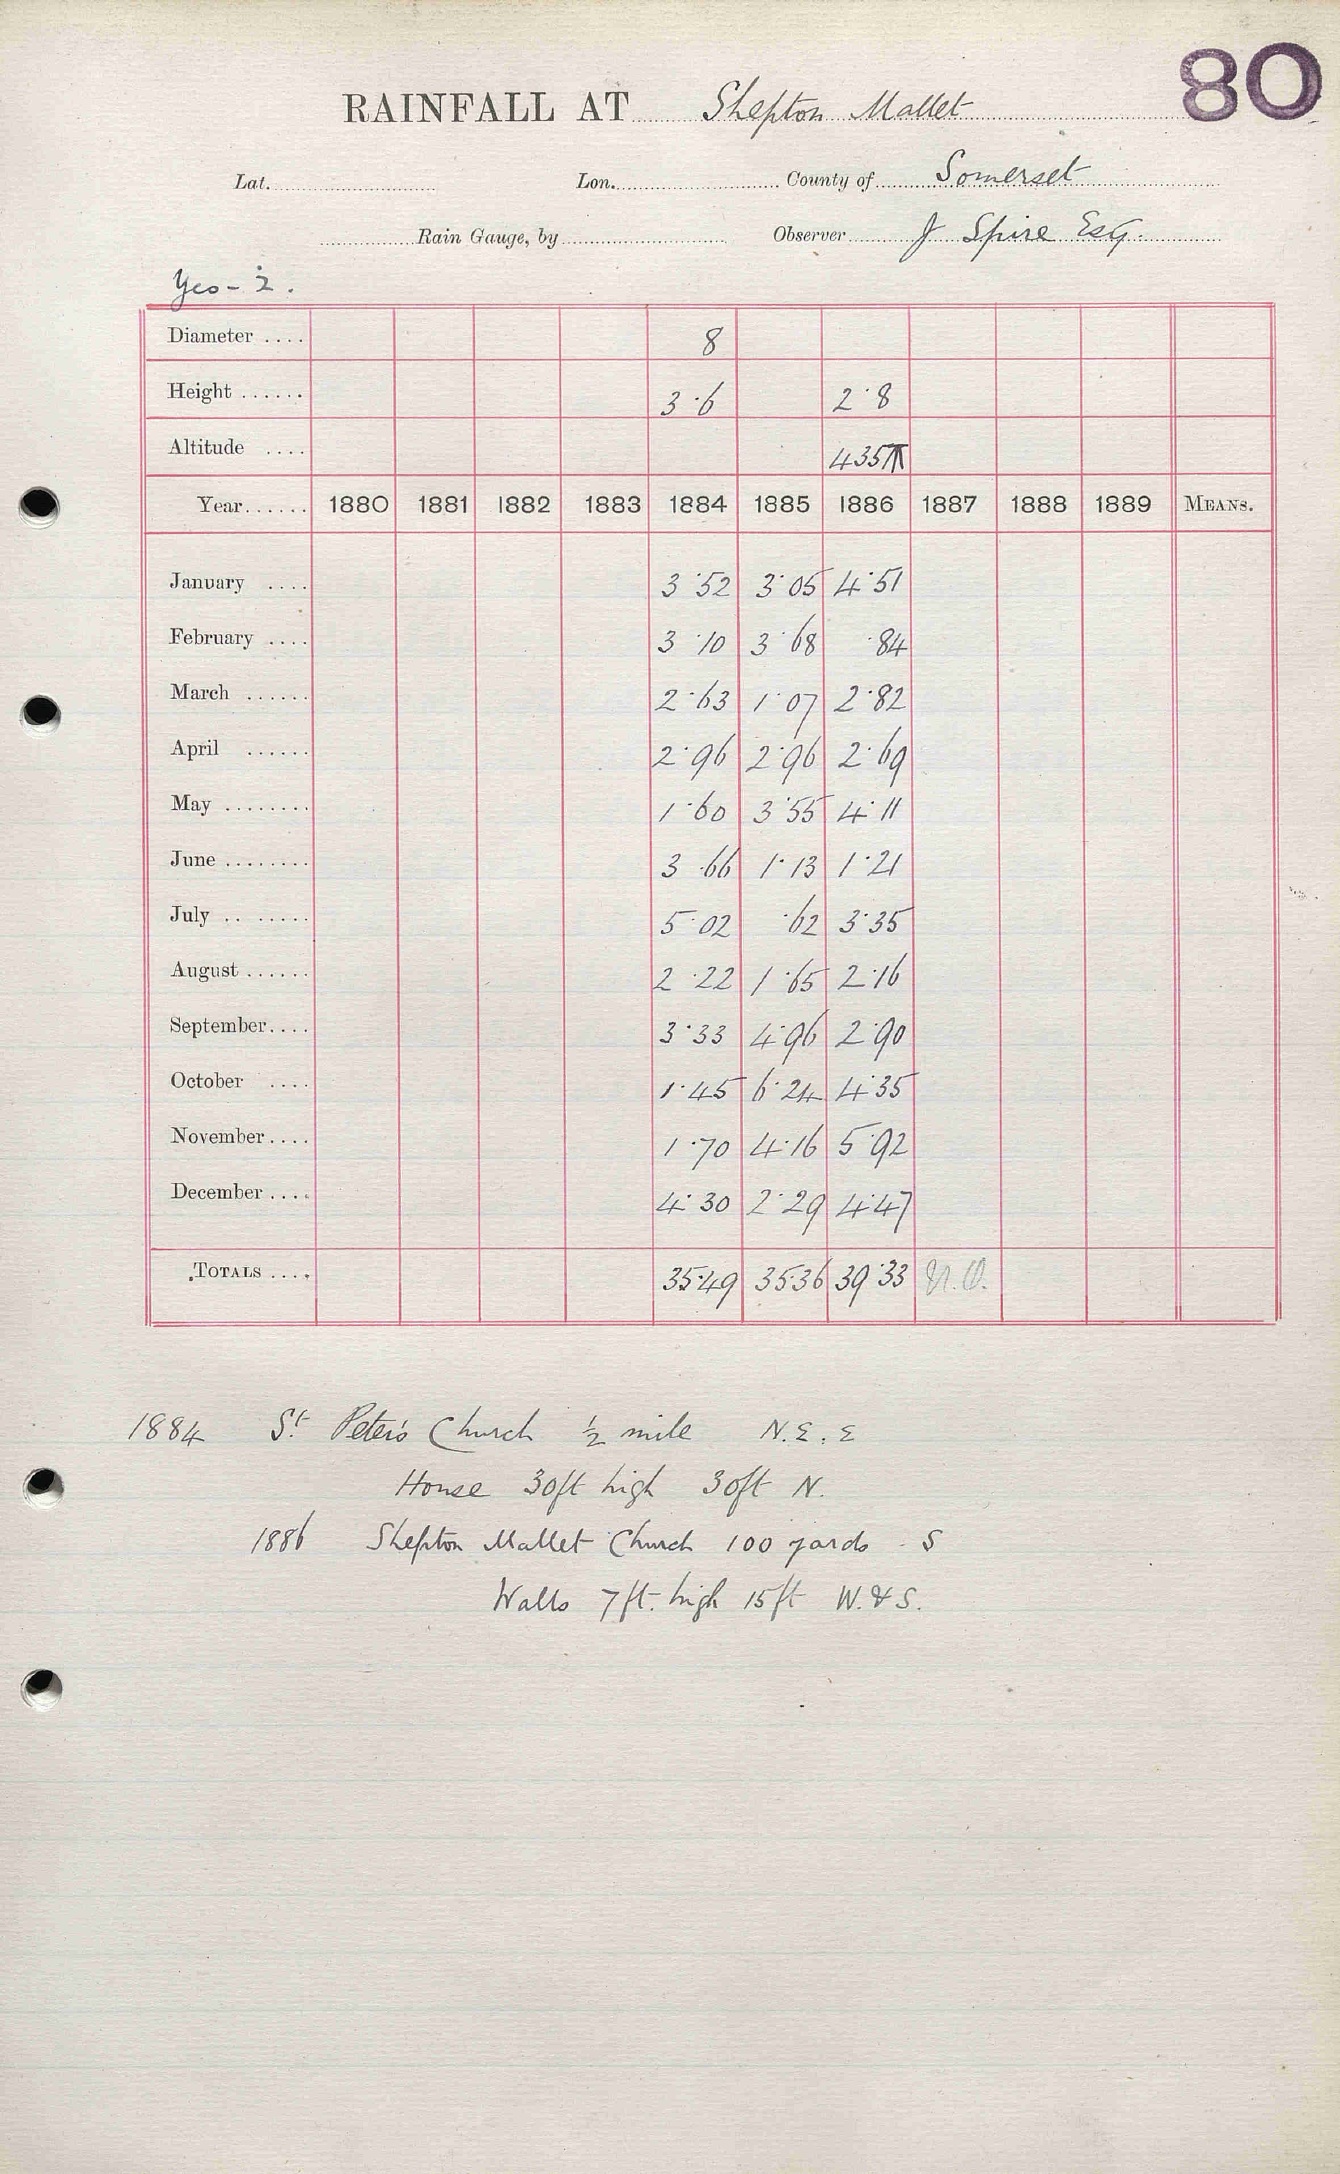 80
RAINFALL AT Shepton Mallet
Lat. Lon. County of Somerset
Rain Gauge, by Observer J Spire Esq.
Yeo - 2.
Diameter .... 8
Height ...... 3·6 2·8
Altitude .... 435
Year...... 1880 1881 1882 1883 1884 1885 1886 1887 1888 1889 MEANS.
January .... 3·52 3·05 4·51
February .... 3·10 3·68 ·84
March ...... 2·63 1·07 2·82
April ...... 2·96 2·96 2·69
May ........ 1·60 3·55 4·11
June ........ 3·66 1·13 1·21
July .. ...... 5·02 ·62 3·35
August ...... 2·22 1·65 2·16
September.... 3·33 4·96 2·90
October .... 1·45 6·24 4·35
November.... 1·70 4·16 5·92
December .... 4·30 2·29 4·47
TOTALS .... 35·49 35·36 39·33 N.O.
1884 St. Peter's Church ½ mile N.E. E
House 30ft high 30ft N.
1886 Shepton Mallet Church 100 yards S
Walls 7ft. high 15ft W. & S.